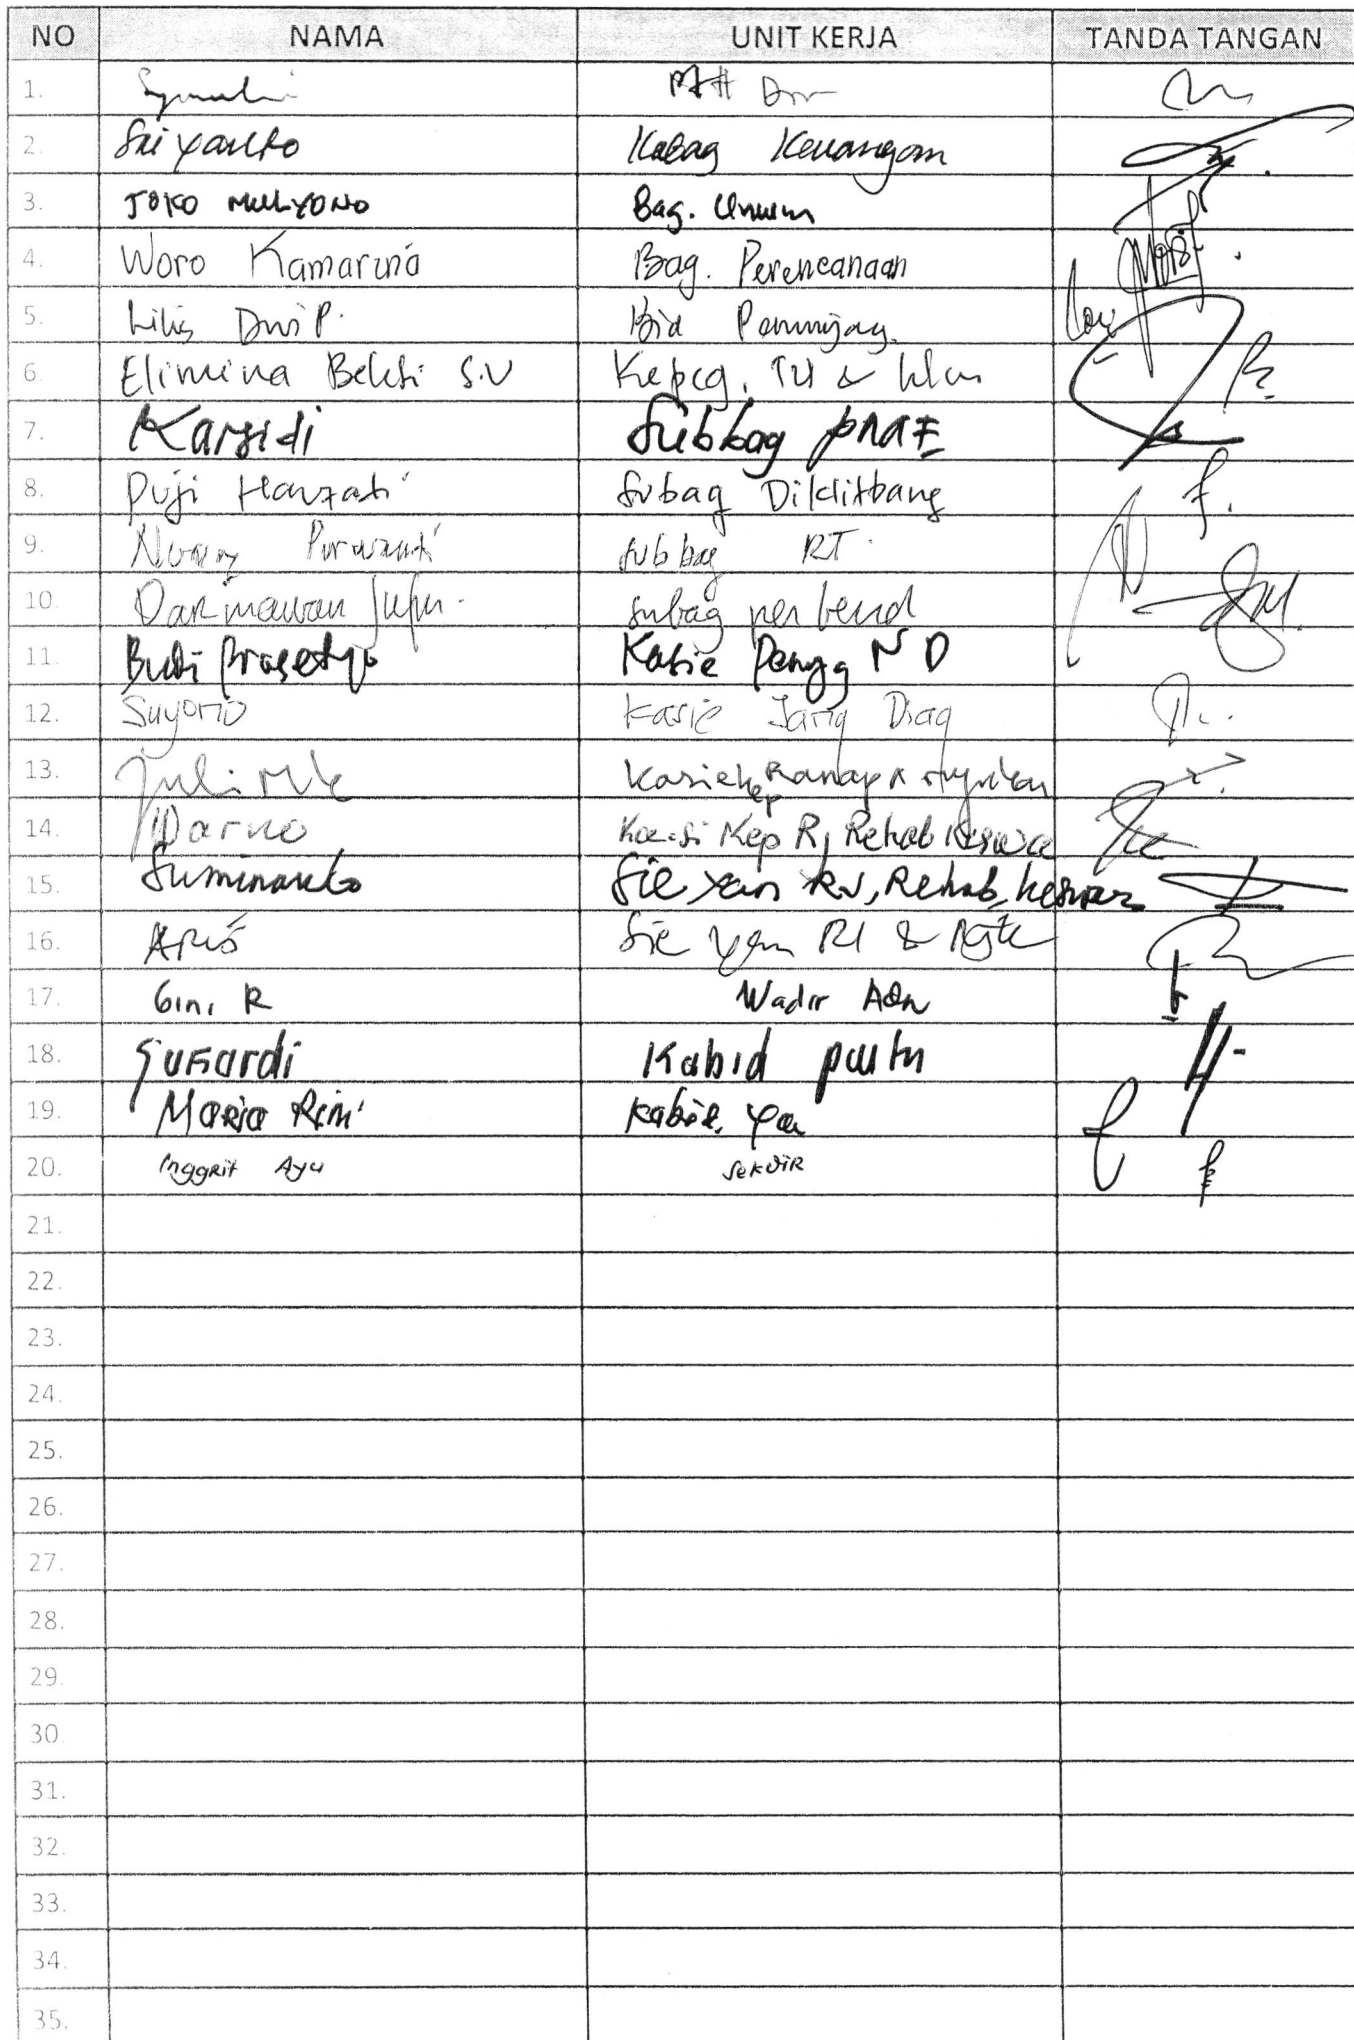 NO NAMA UNIT KERJA TANDA TANGAN
1.
2. Sri Yanto Kabag Keuangan
3. JOKO MULYONO Bag. Umum
4. Woro Kamarina Bag. Perencanaan
5. Lilis Dwi P. Bid Penunjang
6. Elimina Bekti S.V Kepeg, TU &
7. Karsidi Subbag
8. Puji Subag Diklitbang
9. Subbag RT.
10. Darmawan Subag
11. Budi Prasetyo Kasie Pengg N D
12. Suyono Kasie Jang Diag
13. Kasie Kep Ranap
14. Darno Ka.si Kep RJ Rehab Keswa
15. Suminanto Sie Yan RJ, Rehab,
16. ARIS Sie Yan RI &
17. Gini R Wadir
18. Sukardi Kabid
19. Maria Rini Kabid. Yan
20. Inggrit Ayu SekDiR
21.
22.
23.
24.
25.
26.
27.
28.
29.
30.
31.
32.
33.
34.
35.